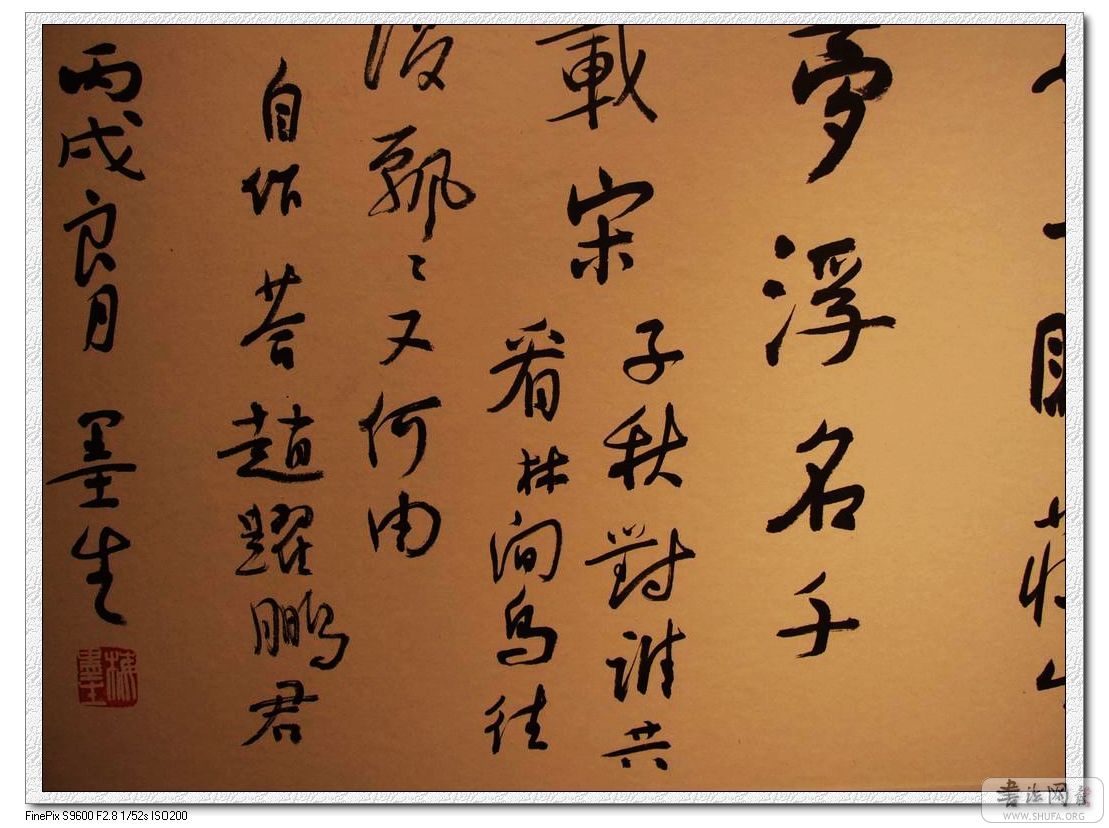 夢浮名千
載宋
子秋對誰共
看林间鸟往
復飘〻又何由
自作答趙躍鵬君
丙戌良月 墨生
書法网
WWW.SHUFA.ORG
FinePix S9600 F2.8 1/52s ISO200